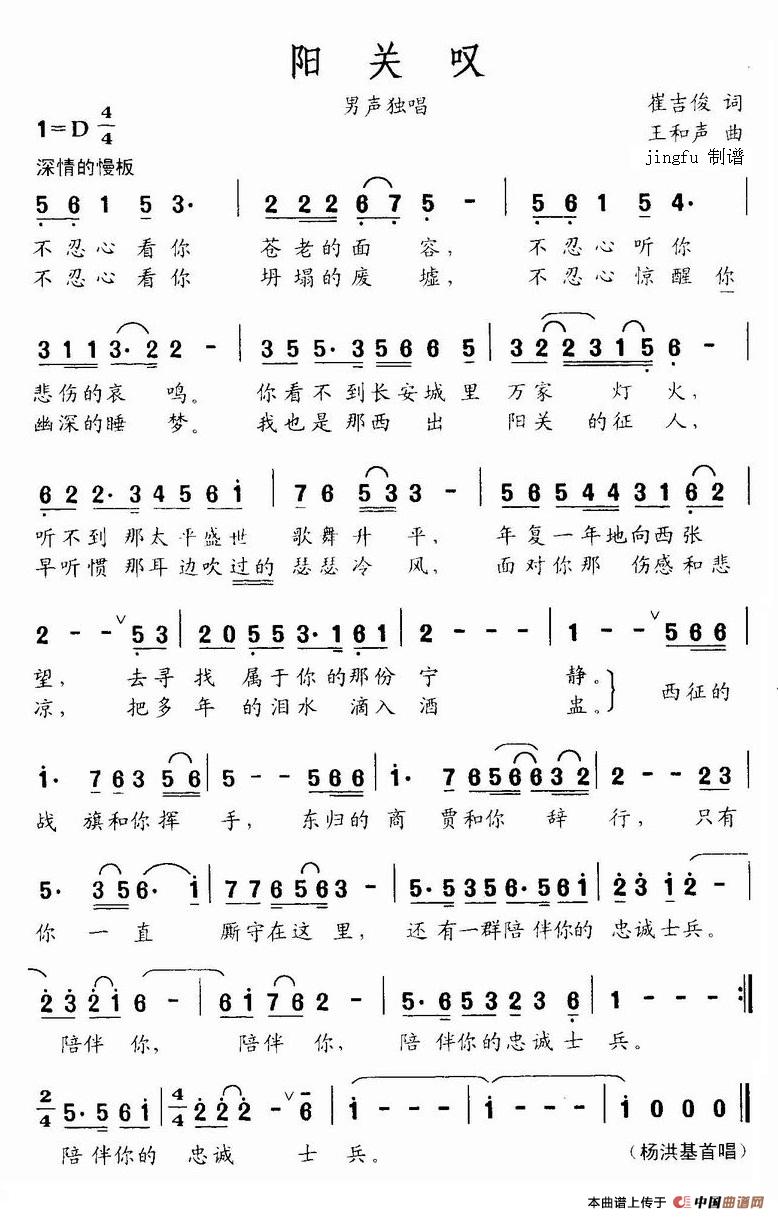 阳关叹
男声独唱
崔吉俊 词
1=D 4/4
王和声 曲
jingfu 制谱
深情的慢板
5 6 1 5 3· | 2 2 2 2 6 7 5 - | 5 6 1 5 4·
不忍心看你 苍老的面 容, 不忍心听你
不忍心看你 坍塌的废 墟, 不忍心惊醒 你
3 1 1 3· 2 2 - | 3 5 5· 3 5 6 6 5 | 3 2 2 3 1 5 6 -
悲伤的哀 鸣。 你看不到长安城里 万家 灯火,
幽深的睡 梦。 我也是那西出 阳关 的征人,
6 2 2· 3 4 5 6 i | 7 6 5 3 3 - | 5 6 5 4 4 3 1 6 2
听不到 那太平盛世 歌舞升 平, 年复一年地向西张
早听惯 那耳边吹过的 瑟瑟冷 风, 面对你那 伤感和悲
2 - - ∨ 5 3 | 2 0 5 5 3· 1 6 1 | 2 - - - | 1 - - ∨ 5 6 6
望, 去寻找 属于你的那份宁 静。 西征的
凉, 把多年 的泪水 滴入酒 盅。
i· 7 6 3 5 6 | 5 - - 5 6 6 | i· 7 6 5 6 6 3 2 | 2 - - 2 3
战 旗和你挥 手, 东归的商 贾和你 辞 行, 只有
5· 3 5 6· i | 7 7 6 5 6 3 - | 5· 5 3 5 6· 5 6 i | 2 3 i 2 -
你 一直 厮守在这里, 还有一群陪伴你的 忠诚士兵。
2 3 2 i 6 - | 6 i 7 6 2 - | 6· 5 6 5 3 2 3 6 | 1 - - - :‖
陪伴你, 陪伴 你, 陪 伴你的忠诚士 兵。
2/4 5· 5 6 i | 4/4 2 2 2 - ∨ 6 | i - - - | i - - - | i 0 0 0 ‖
陪伴你的 忠诚 士 兵。
(杨洪基首唱)
本曲谱上传于 中国曲谱网